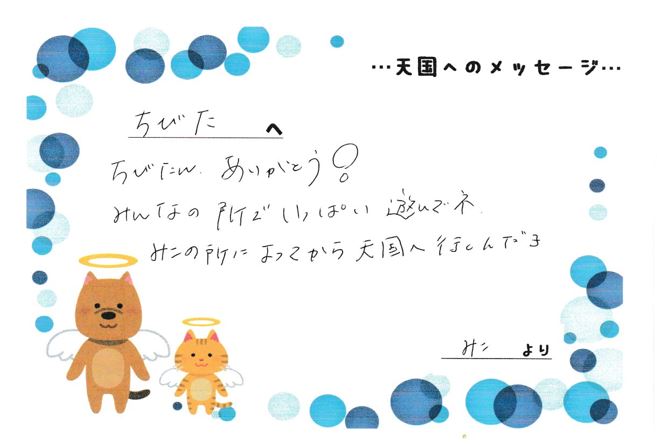 …天国へのメッセージ…
ちびた へ
ちびたん、ありがとう!
みんなの所でいっぱい遊んでネ、
みこの所によってから天国へ行くんだヨ
みこ より